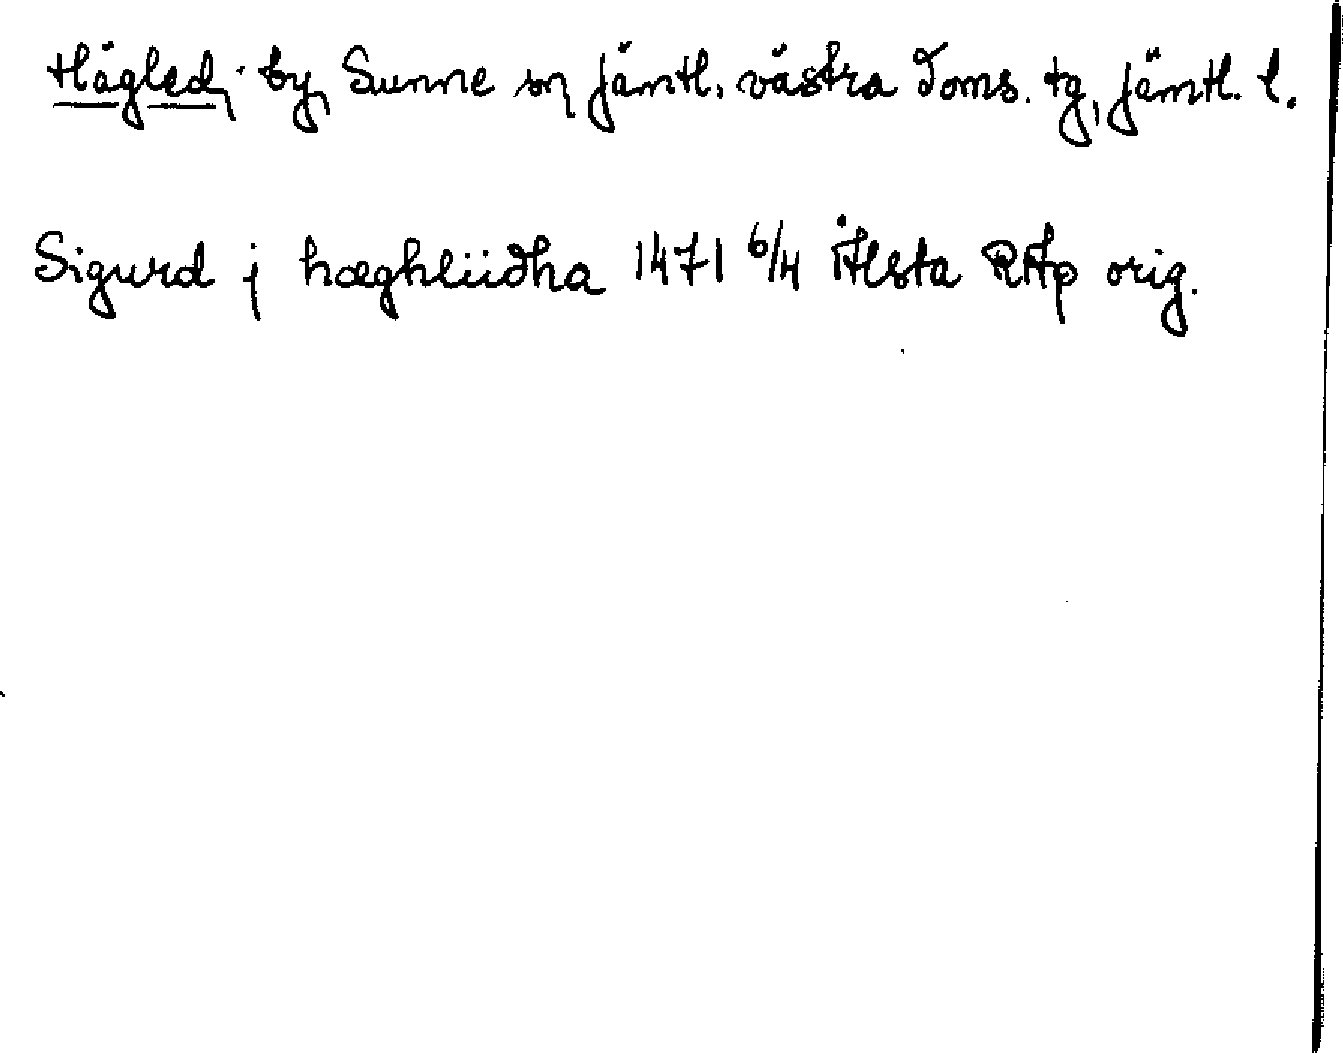 Hägled, by, Sunne sn Jämtl. västra doms. tg, Jämtl. l.
Sigurd j hæghliidha 1471 6/4 Ålsta RAp orig.